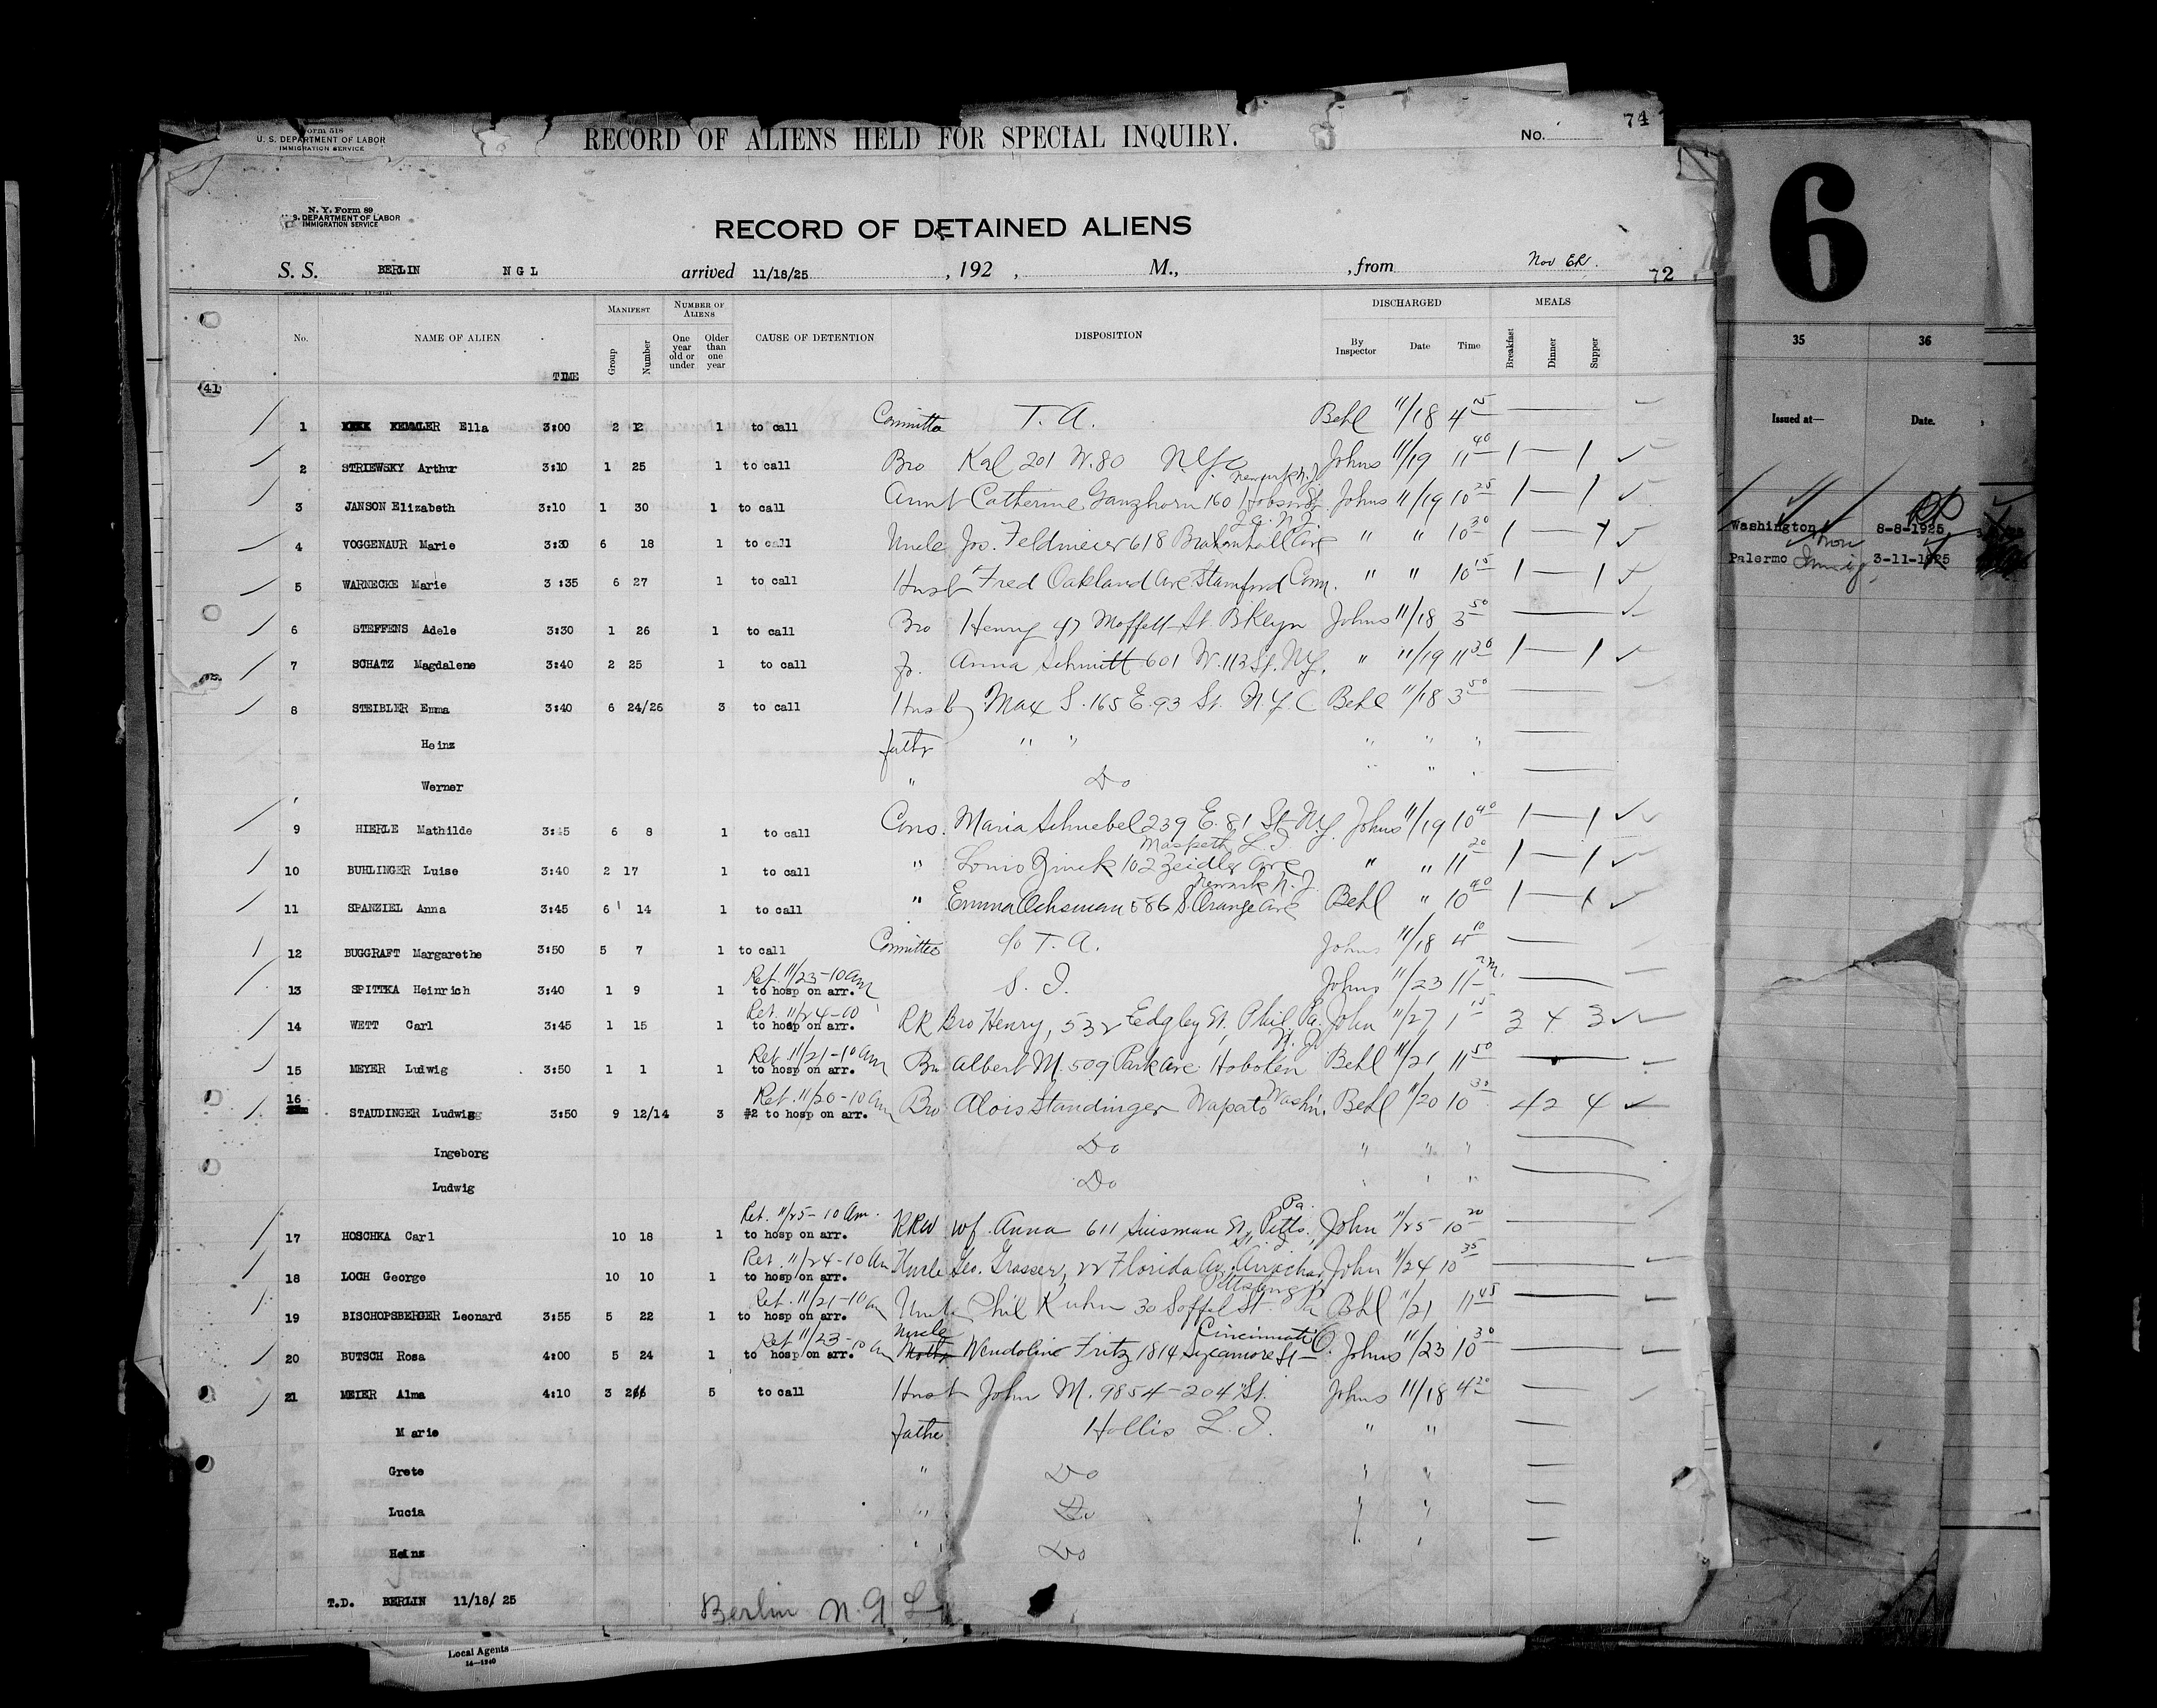 Form 518
U. S. DEPARTMENT OF LABOR
IMMIGRATION SERVICE
RECORD OF ALIENS HELD FOR SPECIAL INQUIRY.
No.
74
N. Y. Form 89
U. S. DEPARTMENT OF LABOR
IMMIGRATION SERVICE
RECORD OF DETAINED ALIENS
S. S. BERLIN N G L arrived 11/18/25, 192 , M., , from Nov 72
No. NAME OF ALIEN TIME MANIFEST Group Number NUMBER OF ALIENS One year old or under Older than one year CAUSE OF DETENTION DISPOSITION DISCHARGED By Inspector Date Time MEALS Breakfast Dinner Supper
41
1 KEMMLER Ella 3:00 2 12 1 to call Committee T. A. Behl 11/18 4 25
2 STRIEWSKY Arthur 3:10 1 25 1 to call Bro Karl 201 W. 80 N.Y.C Johns 11/19 11 40 1 — 1
Newark N.J.
3 JANSON Elizabeth 3:10 1 30 1 to call Aunt Catherine Ganzhorn 160 Hobson St. Johns 11/19 10 25 1 — 1
4 VOGGENAUR Marie 3:30 6 18 1 to call Uncle Jos. Feldmeier 618 Ave " " 10 30 1 —
5 WARNECKE Marie 3:35 6 27 1 to call Husb Fred Oakland Ave Stamford Conn. " " 10 15 1 — 1
6 STEFFENS Adele 3:30 1 26 1 to call Bro Henry 47 Moffett St. Bklyn Johns 11/18 3 50
7 SCHATZ Magdalene 3:40 2 25 1 to call Fr. Anna Schmitt 601 W. 113 St. N.Y. " 11/19 11 30 1 — 1
8 STEIBLER Emma 3:40 6 24/26 3 to call Husb Max S. 165 E. 93 St. N.Y.C Behl 11/18 3 50
Heinz father " " " " "
Werner " Do " " "
9 HIERLE Mathilde 3:45 6 8 1 to call Cous. Maria Schnebel 239 E. 81 St N.Y. Johns 11/19 10 40 1 — 1
Maspeth L. I.
10 BUHLINGER Luise 3:40 2 17 1 to call " Louis Zinck 102 Zeidler Ave " " 11 20 1 — 1
Newark N. J.
11 SPANZIEL Anna 3:45 6 14 1 to call " Emma Ochsman 586 S. Orange Ave Behl " 10 40 1 — 1
12 BUGGRAFT Margarethe 3:50 5 7 1 to call Committee c/o T. A. Johns 11/18 4 10
Ret. 11/23-10 am
13 SPITTKA Heinrich 3:40 1 9 1 to hosp on arr. S. I. Johns 11/23 11
Ret. 11/24-00
14 WETT Carl 3:45 1 15 1 to hosp on arr. RR Bro Henry, 532 Edgley St, Phil, Pa. John 11/27 1 15 3 4 3
Ret 11/21-10 am N. J.
15 MEYER Ludwig 3:50 1 1 1 to hosp on arr. Bro Albert M. 509 Park Ave Hoboken Behl 11/21 11 50
Ret. 11/20-10 am
16 STAUDINGER Ludwig 3:50 9 12/14 3 #2 to hosp on arr. Bro Alois Staudinger Wapato Washn. Behl 11/20 10 30 4 2 4
Ingeborg Do " " "
Ludwig Do " " "
Ret. 11/25-10 Am. Pa.
17 HOSCHKA Carl 10 18 1 to hosp on arr. RRW wf. Anna 611 Suisman St, Pitts. John 11/25 10 20
Ret. 11/24-10 Am
18 LOCH George 10 10 1 to hosp on arr. Uncle Geo. Grasser, 22 Florida Av. John 11/24 10 35
Ret. 11/21-10 am Pittsburg
19 BISCHOPSBERGER Leonard 3:55 5 22 1 to hosp on arr. Uncle Phil Kuhn 30 Soffel St. Pa Behl 11/21 11 45
Ret 11/23-10 am Uncle Cincinnati
20 BUTSCH Rosa 4:00 5 24 1 to hosp on arr. Wendoline Fritz 1814 Sycamore St - O. Johns 11/23 10 30
21 MEIER Alma 4:10 3 5 to call Husb John M. 9854-204 St. Johns 11/18 4 20
Marie Father Hollis L. I. " "
Grete " Do " "
Lucia " Do " "
Heinz " Do " "
T.D. BERLIN 11/18/ 25
Berlin N. G L
Local Agents
14—1240
6
35 36
Issued at— Date.
Washington 8-8-1925
Palermo 3-11-1925